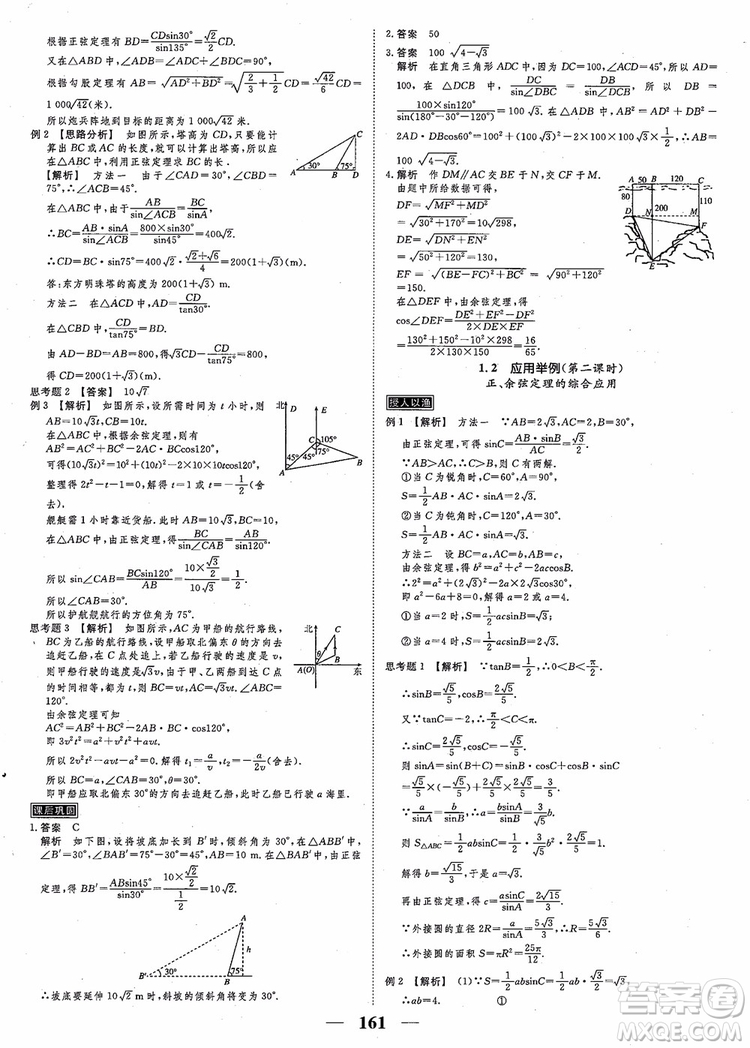 根据正弦定理有 BD=CDsin30°/sin135°=√2/2 CD.
又在△ABD中,∠ADB=90°.
根据勾股定理有 AB=√(AD²+BD²)=√(2/3+1/2) CD=√42/6 CD=
1 000√42(米).
所以炮兵阵地到目标的距离为1 000√42米.
例2 【思路分析】 如图所示,塔高为CD,只要能计
算出BC或AC的长度,就可以计算出塔高.所
以在△ABC中,利用正弦定理求解.
【解析】 方法一 由于∠CAD=30°,∠CBD=
75°,∴∠ACB=45°.
在△ABC中,由于AB/sin∠ACB=BC/sinA,
∴BC=AB·sinA/sin∠ACB=800×sin30°/sin45°=400√2(m).
∴CD=BC·sin75°=400√2·(√2+√6)/4=200(1+√3)(m)
答:东方明珠塔的高度为200(1+√3)(m).
方法二 在△ACD中,AD=CD/tan30°.
在△BCD中,CD/tan75°=BD.
由AD-BD=800,得(√3-1/tan75°)CD=800.
由此可得CD=200(1+√3).
思考题2 【答案】 10√7
例3 【解析】 如图所示,设所需时间为t小时,则
AB=10√3t,CB=10t.
在△ABC中,根据余弦定理,则有
AB²=AC²+BC²-2AC·BCcos120°,
可得(10√3t)²=10²+(10t)²-2×10×10tcos120°,
整理得2t²-t-1=0,解得t=1或t=-1/2(舍去).
舰艇需1小时靠近货船.
此时AB=10√3,BC=10,在△ABC中,由正弦定理得
BC/sin∠CAB=AB/sin120°.
所以sin∠CAB=BCsin120°/AB=10×√3/2/10√3=1/2.
所以∠CAB=30°.
所以护航舰航行的方位角为75°.
思考题3 【解析】 如图所示,AC为甲船的航行路线,
BC为乙船的航行路线,设甲船取北偏东θ的方向去
追赶乙船,在C点处追上.若乙船行驶的速度是v,
则甲船行驶的速度是√3v,由于甲、乙两船到C点的
时间相同,都为t,则BC=vt,AC=√3vt,∠ABC=
120°.
由余弦定理可知
AC²=AB²+BC²-2AB·BC·cos120°,
即3v²t²=a²+v²t²+avt.
所以2v²t²-avt-a²=0.解得t₁=a/v,t₂=-a/2v(舍去).
所以BC=a,∠CAB=30°,θ=30°.
即甲船应取北偏东30°的方向去追赶乙船,此时乙船行驶a海里.
课后巩固
1.答案 C
解析 如下图,设将坡底加长到B′时,倾斜角为30°,在△ABB′中,
∠B′=30°,∠BAB′=75°-30°=45°,AB=10 m.在△ABB′中,由正弦
定理,得BB′=ABsin45°/sin30°=10×√2/2/1/2=10√2(m).
A
h
B′ 30° B 75°
∴坡底要延伸10√2 m时,斜坡的倾斜角将变为30°.
C
A 30° 75° B D
北 北 C 105° 75° 45° A B
北 C B A(O) 东
2.答案 50
3.答案 100√(4-√3)
解析 在直角三角形ADC中,∠DAC=45°.由CD=100,得AD=
100,在△DCB中,DC/sin∠DBC=DB/sin∠DCB,∴DB=
100×sin120°/sin(180°-30°-120°)=100√3.在△ADB中,AB²=AD²+DB²-
2AD·DBcos60°=100²+(100√3)²-2×100×100√3/2,∴AB=
100√(4-√3).
4.解析 作DM∥AC交BE于N,交CF于M.
由题中所给数据可得
DF=√(MF²+MD²)
=√(30²+170²)=10√298,
DE=√(DN²+EN²)
=√(50²+120²)=130,
EF=√((BE-FC)²+BC²)=√(90²+120²)
=150.
在△DEF中,由余弦定理,得
cos∠DEF=(DE²+EF²-DF²)/(2×DE×EF)
=(130²+150²-10²×298)/(2×130×150)=16/65.
A 50 B 120 C
110
200
D N M
F
E
1.2 应用举例(第二课时)
正、余弦定理的综合应用
授人以渔
例1 【解析】 方法一 ∵AB=2√3,AC=2,B=30°,
∴由正弦定理可得sinC=AB·sinB/AC=√3/2.
∵AB>AC,∴C>B,∴C有两解.
①当C为锐角时,C=60°,A=90°,
S=1/2AB·AC·sinA=2√3.
②当C为钝角时,C=120°,A=30°,
S=1/2AB·AC·sinA=√3.
方法二 设BC=a,AC=b,AB=c,
由余弦定理,得b²=a²+c²-2accosB.
∴2²=a²+(2√3)²-2a×2√3×√3/2.
即a²-6a+8=0,∴a=2或a=4.
①当a=2时,S=1/2acsinB=√3;
②当a=4时,S=1/2acsinB=2√3.
思考题1 【解析】 ∵tanB=1/2>0,∴0<B<π/2.
∴sinB=√5/5,cosB=2√5/5.
又∵tanC=-2,∴π/2<C<π.
∴sinC=2√5/5,cosC=-√5/5.
则sinA=sin(B+C)=sinBcosC+cosBsinC=
√5/5×(-√5/5)+2√5/5×2√5/5=3/5.
∵a/sinA=b/sinB,
∴a=bsinA/sinB=3√5/5 b.
则S△ABC=1/2absinC=1/2·3√5/5b²·2√5/5=1.
解得b=√15/3,于是a=√3.
再由正弦定理,得c=asinC/sinA=2√15/3.
∵外接圆的直径2R=a/sinA=5√3/3,∴R=5√3/6.
∴外接圆的面积S=πR²=25π/12.
例2 【解析】 (1)∵S=1/2absinC=1/2ab·√3/2=√3,
∴ab=4. ①
161
答案圈